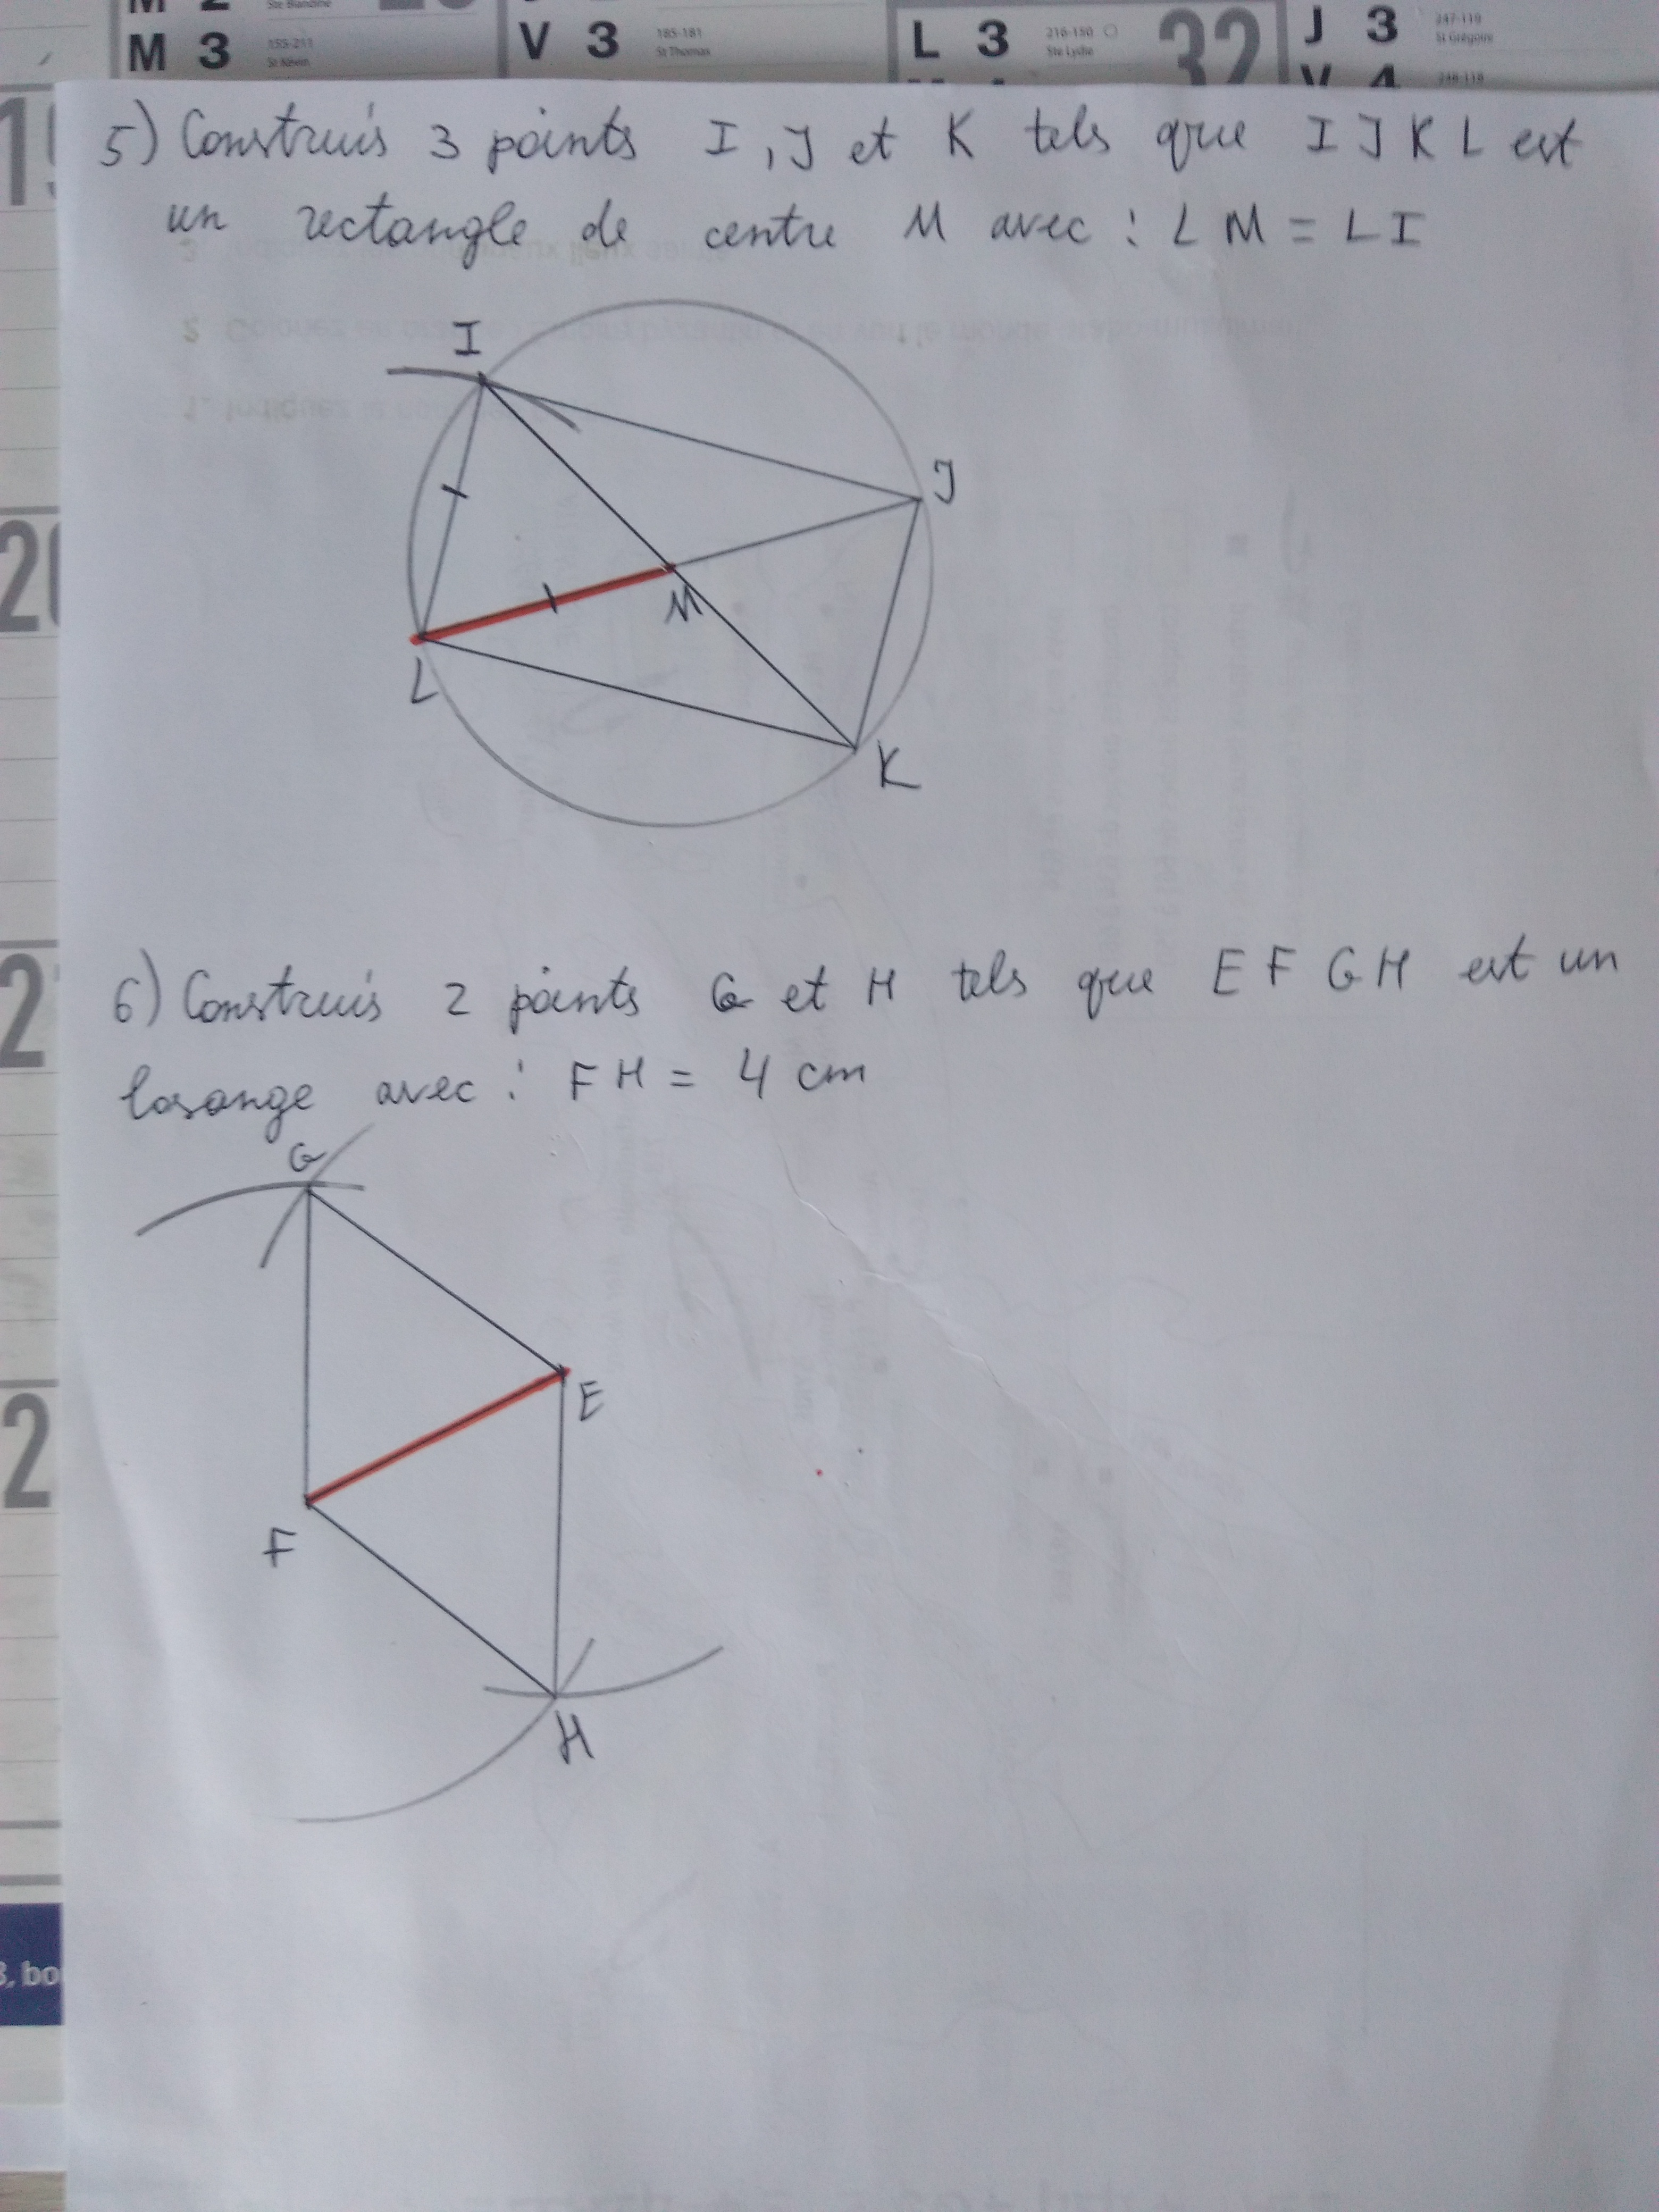 M 3 155-211 St Kévin
V 3 185-181 St Thomas
L 3 216-150 Ste Lydie
32
J 3 247-119 St Grégoire
V 4 248-118
5) Construis 3 points I, J et K tels que I J K L est
un rectangle de centre M avec : L M = L I
I
J
M
L
K
6) Construis 2 points G et H tels que E F G H est un
losange avec : F H = 4 cm
G
E
F
H
20